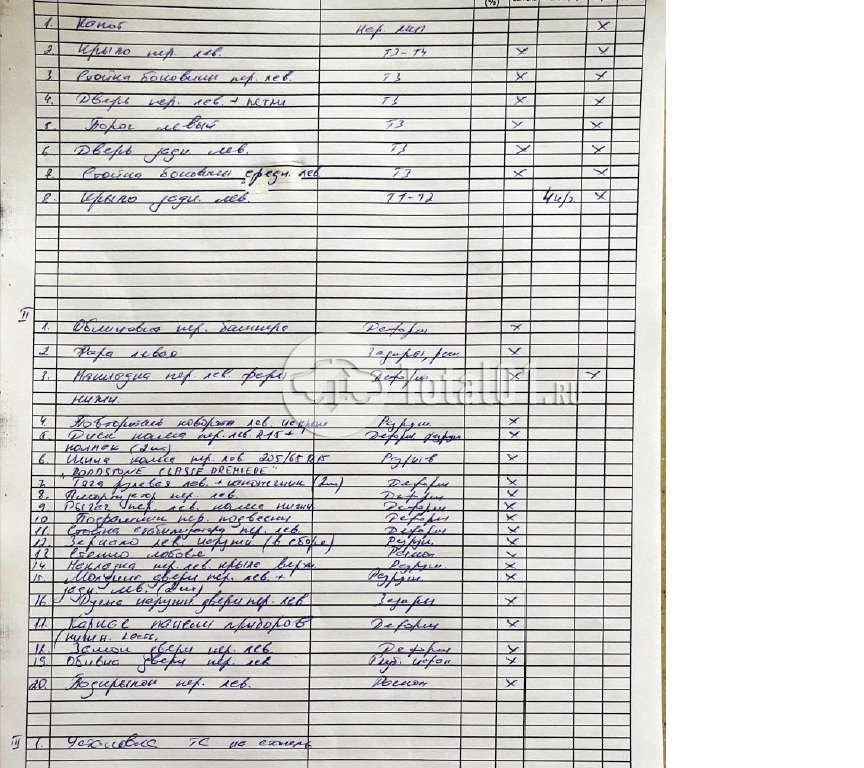 (%)
1. Капот нер. лкп х
2. Крыло пер. лев. Т3-Т4 х х
3 Стойка боковины пер. лев. Т3 х х
4. Дверь пер. лев. + петли Т3 х х
5. Порог левый Т3 х х
6 Дверь задн. лев. Т3 х х
7 Стойка боковины средн. лев Т3 х х
8. Крыло задн. лев. Т1-Т2 х
II
1. Облицовка пер. бампера Деформ х
2 Фара левая Задиры, х
3. Накладка пер. лев. фары Деформ х х
нижн.
Total01.RU
4. Повторитель поворота лев. Разруш х
5. Диск колеса пер. лев. R15 + Деформ х
колпак (2шт)
6. Шина колеса пер. лев. 205/65 R15 Разрыв х
"ROADSTONE CLASSE PREMIERE"
7. Тяга рулевая лев. + наконечник (2шт) Деформ х
8. Амортизатор пер. лев. Деформ х
9. Рычаг пер. лев. колеса нижн Деформ х
10. Подрамник пер. подвески Деформ х
11. Стойка стабилизатора пер. лев. Деформ х
12. Зеркало лев. наружн (в сборе) Разруш. х
13 Стекло лобовое Раскол х
14 Накладка пер. лев. крыла верх. Разруш х
15. Молдинг двери пер. лев. + Разруш. х
задн. лев. (2шт)
16. Ручка наружн двери пер. лев Задиры х
17. Каркас панели приборов Деформ х
(нижн. част.
18. Замок двери пер. лев. Деформ х
19. Обивка двери пер. лев х
20. Подкрылок пер. лев. Раскол х
III 1. Установка ТС на стапель